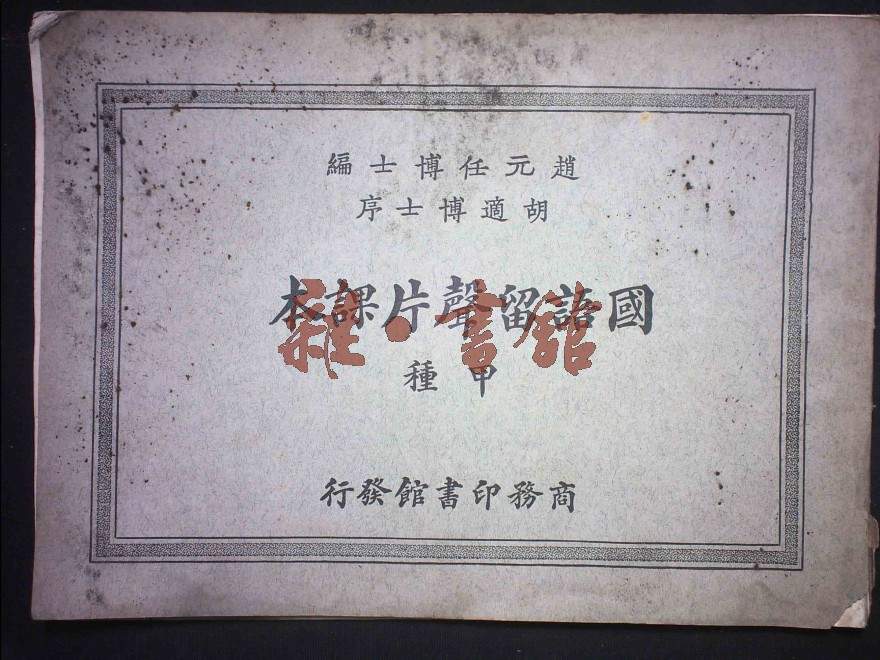 趙元任博士編
胡適博士序
國語留聲片課本
甲種
商務印書館發行
雜·書館